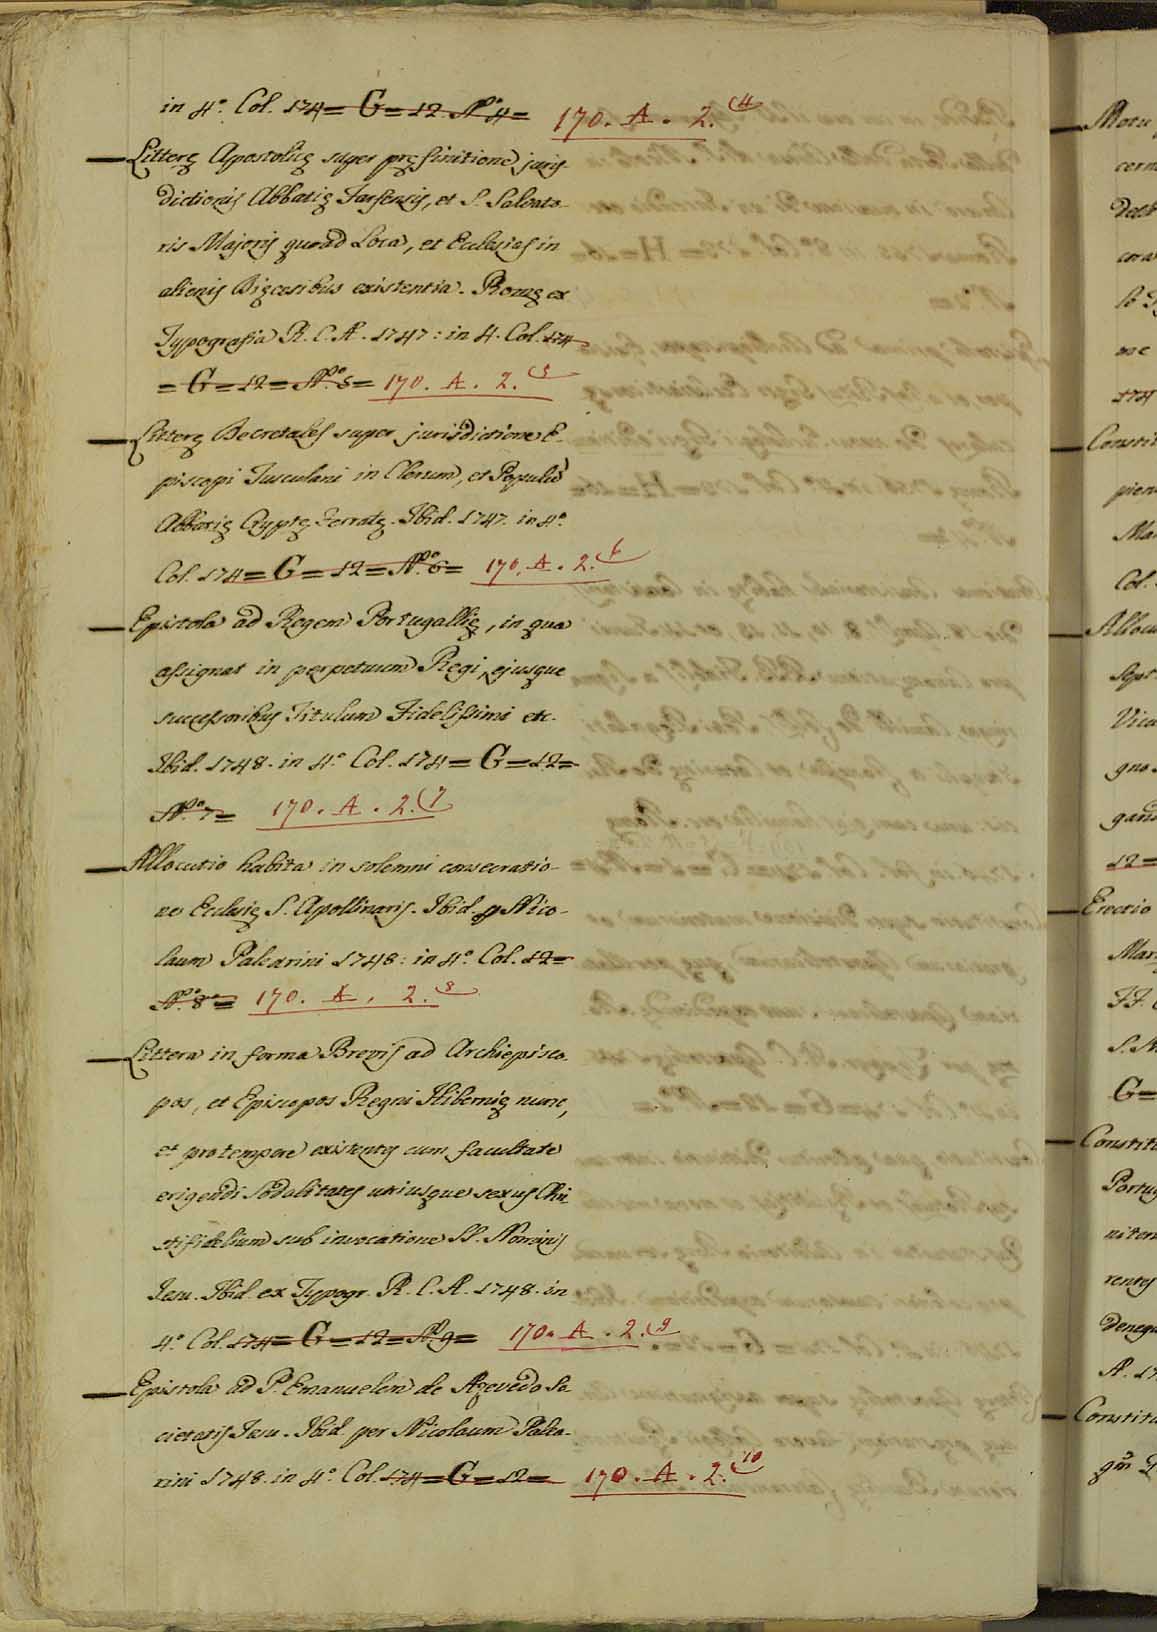 in 4.º Col. 174= G= 12. Nº 4= 170. A. 2. (4
Litterę Apostolicę super pręfinitione juris-
dictionis Abbatię Farfensis, et S. Salvato-
ris Majoris quoad Loca, et Ecclesias in
alienis Dięcesibus existentia. Romę ex
Typografia R. C. A. 1747: in 4. Col. 174
= G= 12= Nº. 5= 170. A. 2. (5
Litterę Decretales super jurisdictione E-
piscopi Tusculani in Clerum, et Populũ
Abbatię Cryptę Ferratę. Ibid. 1747. in 4º.
Col. 174= G= 12= Nº. 6= 170. A. 2. (6
Epistola ad Regem Portugallię, in qua
assignat in perpetuum Regi, ejusque
successoribus Titulum Fidelissimi etc.
Ibid. 1748. in 4.º Col. 174= G= 12=
Nº. 7= 170. A. 2. (7
Allocutio habita in solemni consecratio-
ne Ecclesię S. Apollinaris. Ibid. p Nico-
laum Palearini 1748: in 4º. Col. 12=
Nº. 8= 170. A. 2. (8
Littera in forma Brevis ad Archiepisco-
pos, et Episcopos Regni Hibernię nunc,
et protempore existentes cum facultate
erigendi Sodalitates utriusque sexus Chri
stifidelium sub invocatione SS. Nominis
Jesu. Ibid. ex Typogr. R. C. A. 1748. in
4.º Col. 174= G= 12= Nº 9= 170. A. 2. (9
Epistola ad P. Emanuelem de Azevedo So-
cietatis Jesu. Ibid. per Nicolaum Palea-
rini 1748. in 4.º Col. 174= G= 12= 170. A. 2. (10
Motu
cern
ne
174
Constit
pien
Col.
Allocu
Sept
Vica
gno
gand
12=
Erectio
Mar
FF.
G=
Constitu
Portug
niten
rentes
denega
A. 17
Constitu